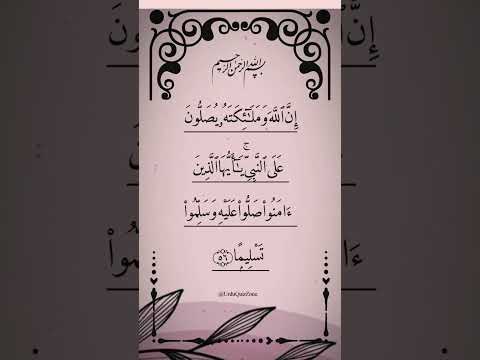 بسم الله الرحمن الرحيم
إِنَّ ٱللَّهَ وَمَلَـٰٓئِكَتَهُۥ يُصَلُّونَ
عَلَى ٱلنَّبِىِّ ۚ يَـٰٓأَيُّهَا ٱلَّذِينَ
ءَامَنُوا۟ صَلُّوا۟ عَلَيْهِ وَسَلِّمُوا۟
تَسْلِيمًا ٥٦
@UrduQuizZone